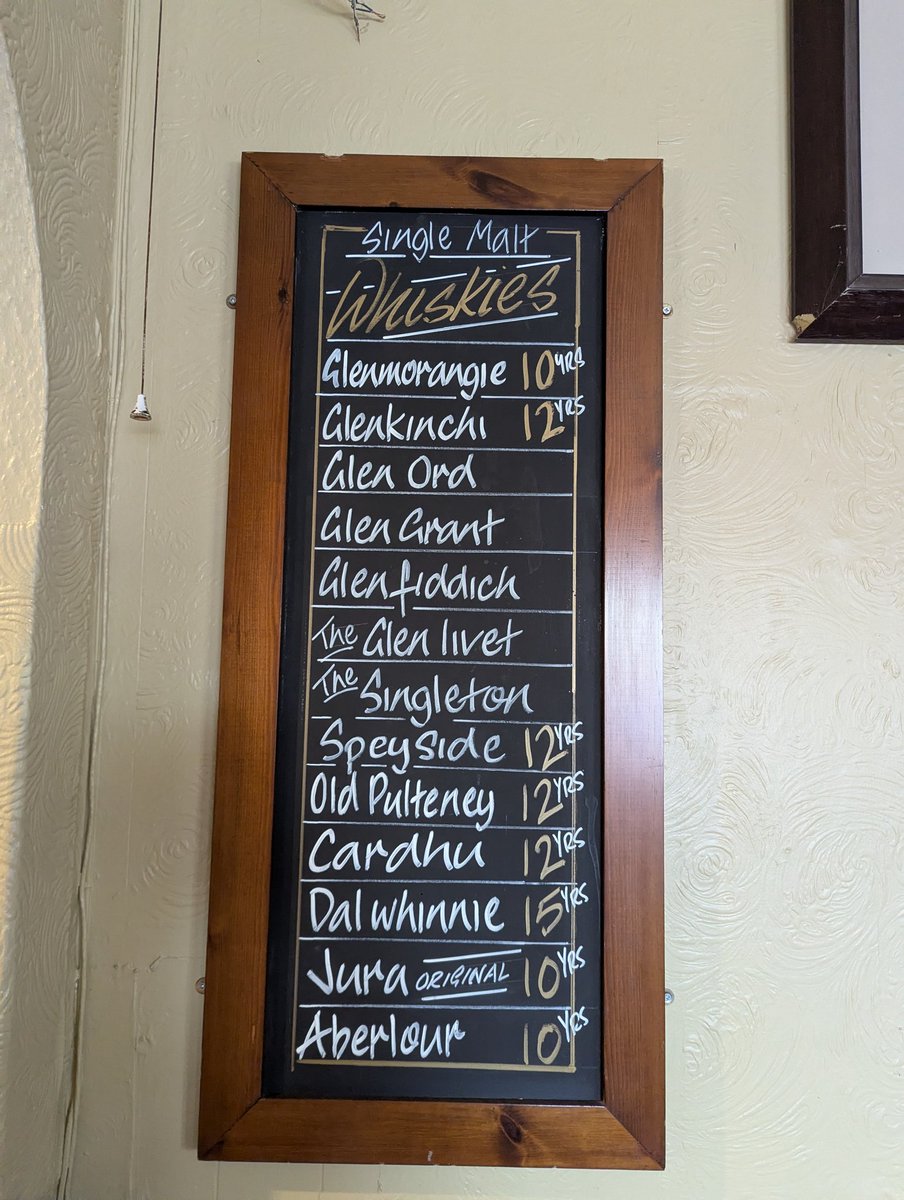 Single Malt
Whiskies
Glenmorangie 10 YRS
Glenkinchi 12 YRS
Glen Ord
Glen Grant
Glenfiddich
The Glen livet
The Singleton
Speyside 12 YRS
Old Pulteney 12 YRS
Cardhu 12 YRS
Dalwhinnie 15 YRS
Jura ORIGINAL 10 YRS
Aberlour 10 YRS